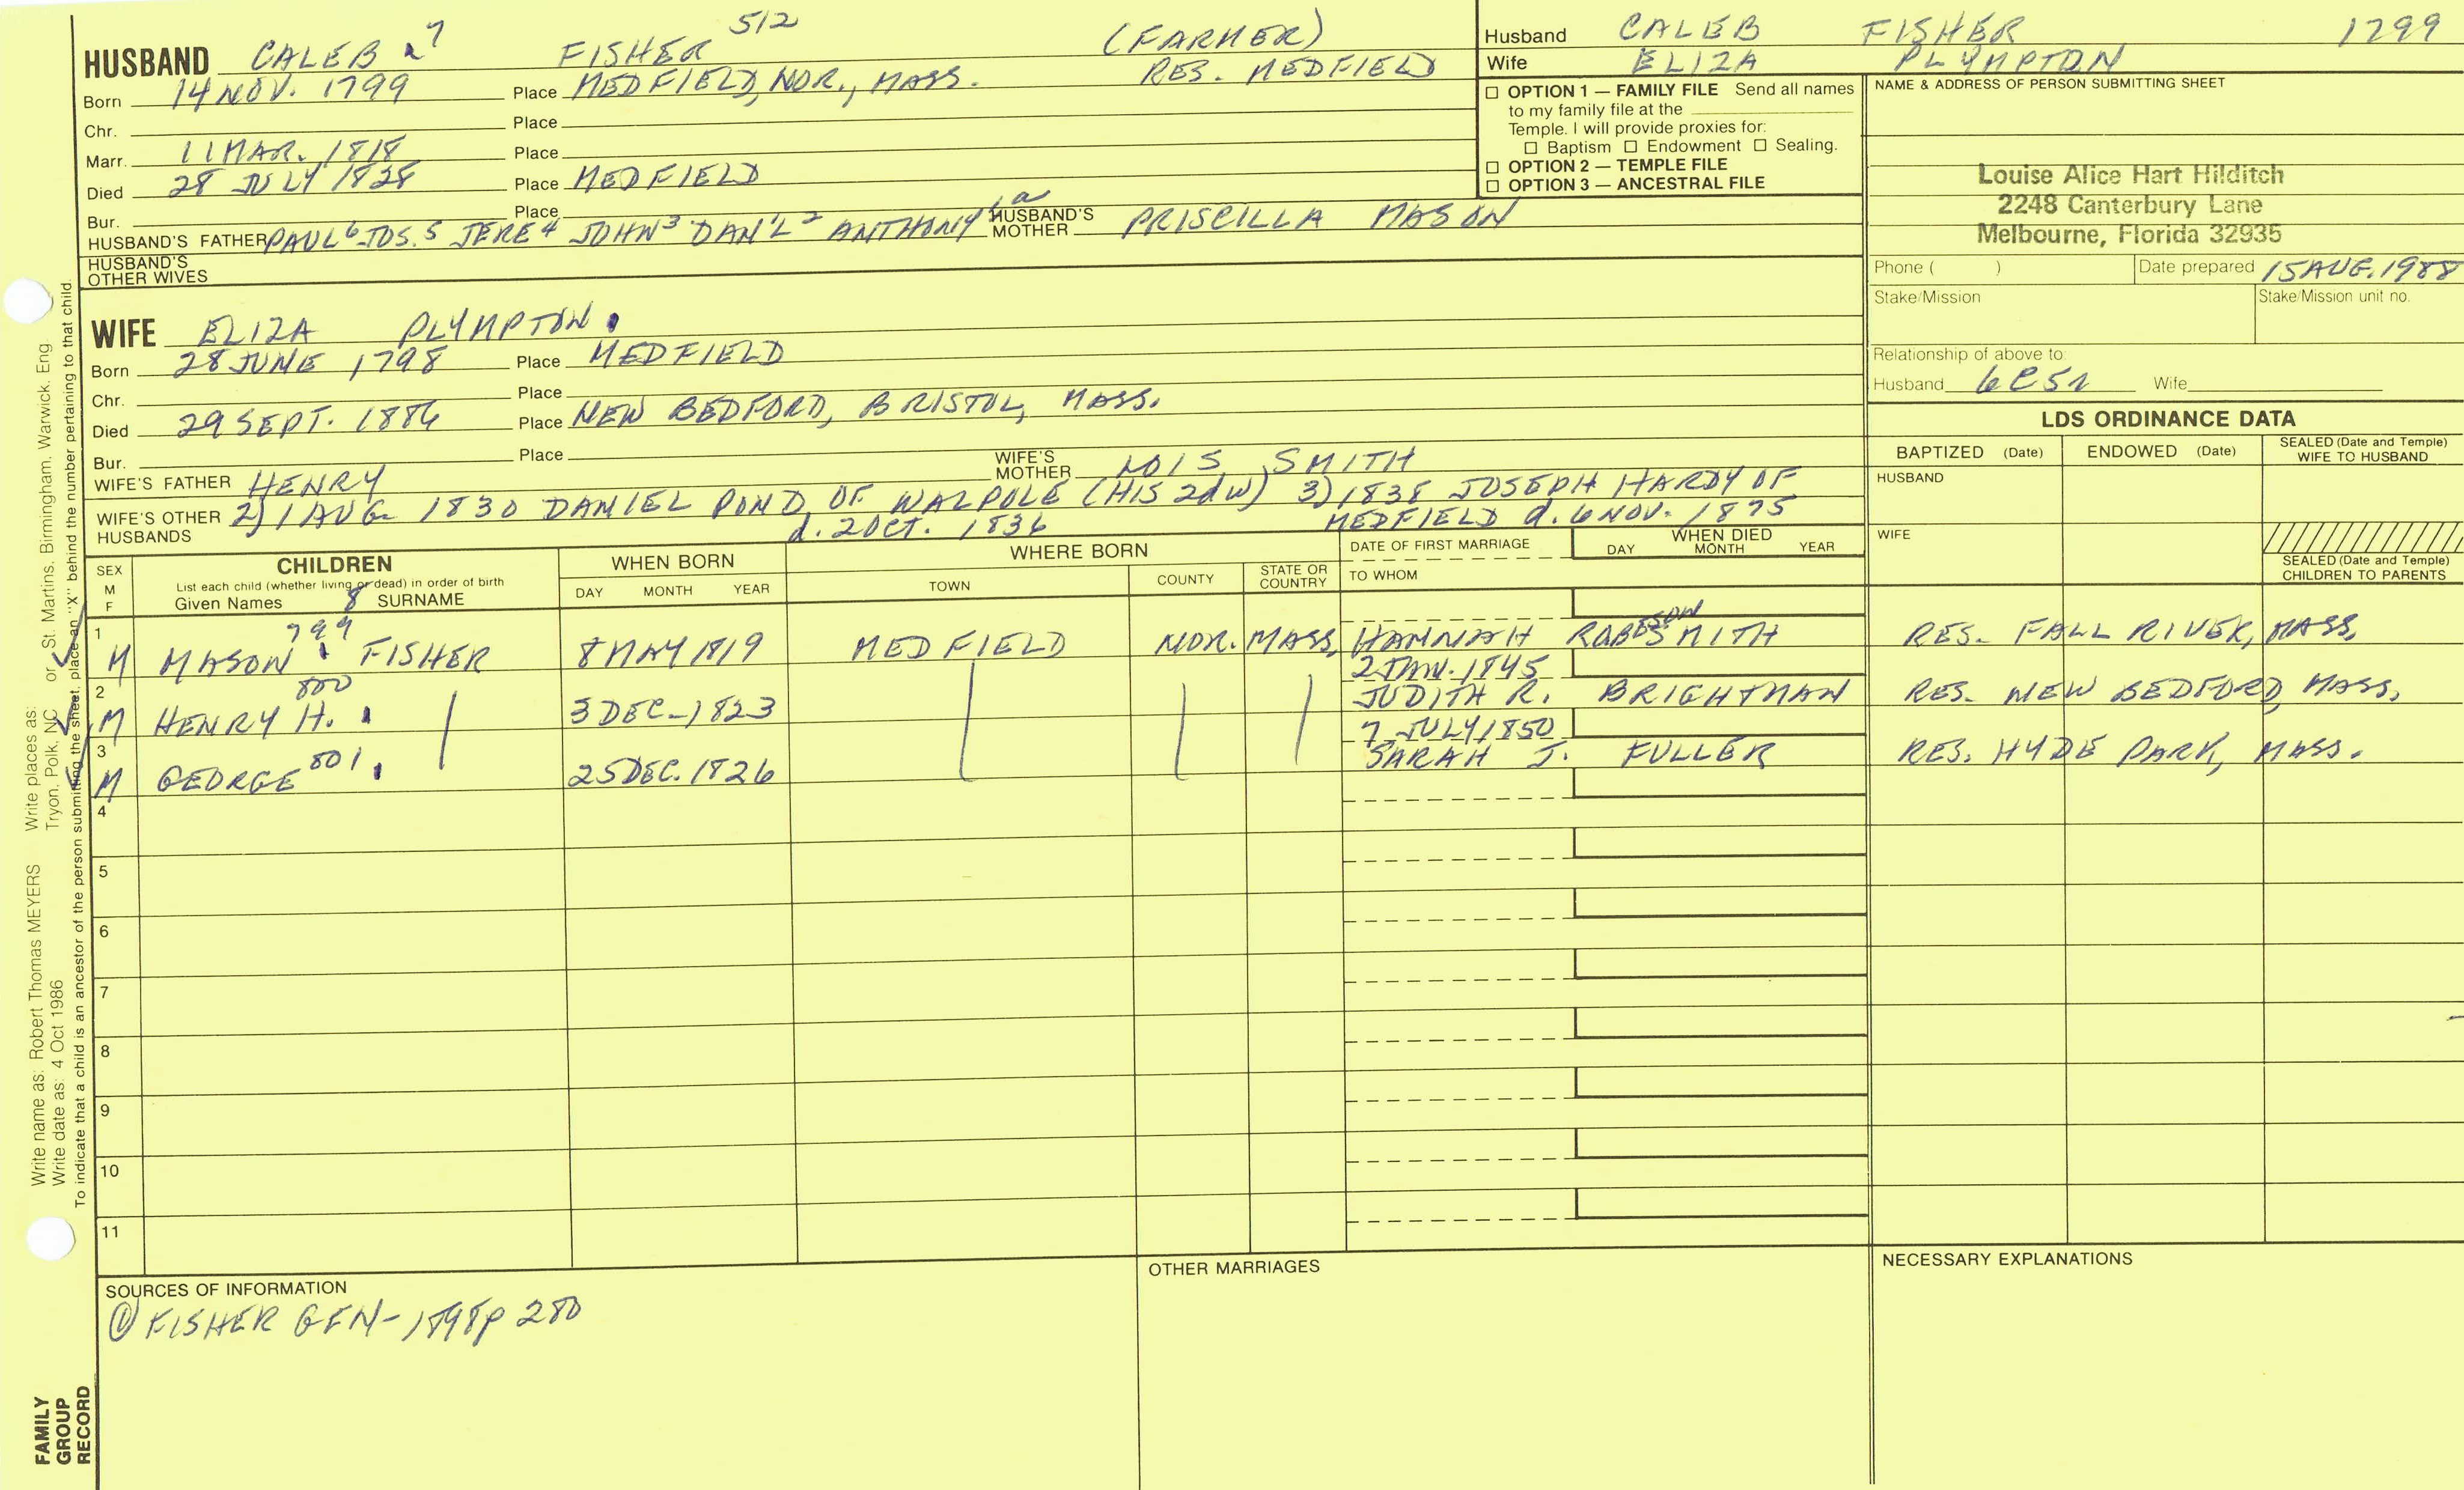 HUSBAND CALEB 7 FISHER 512 (FARMER)
Born 14 NOV. 1799 Place MEDFIELD, NOR., MASS. RES. MEDFIELD
Chr. Place
Marr. 11 MAR. 1818 Place
Died 28 JULY 1828 Place MEDFIELD
Bur. Place
HUSBAND'S FATHER PAUL 6 JOS. 5 JERE 4 JOHN 3 DAN'L 2 ANTHONY 1a HUSBAND'S MOTHER PRISCILLA MASON
HUSBAND'S OTHER WIVES
WIFE ELIZA PLYMPTON
Born 28 JUNE 1798 Place MEDFIELD
Chr. Place
Died 29 SEPT. 1886 Place NEW BEDFORD, BRISTOL, MASS.
Bur. Place
WIFE'S FATHER HENRY WIFE'S MOTHER LOIS SMITH
WIFE'S OTHER HUSBANDS 2) 1 AUG 1830 DANIEL POND OF WALPOLE (HIS 2d W) 3) 1838 JOSEPH HARDY OF
d. 2 OCT. 1836 MEDFIELD d. 6 NOV. 1875
Husband CALEB FISHER 1799
Wife ELIZA PLYMPTON
☐ OPTION 1 — FAMILY FILE Send all names
to my family file at the
Temple. I will provide proxies for:
☐ Baptism ☐ Endowment ☐ Sealing.
☐ OPTION 2 — TEMPLE FILE
☐ OPTION 3 — ANCESTRAL FILE
NAME & ADDRESS OF PERSON SUBMITTING SHEET
Louise Alice Hart Hilditch
2248 Canterbury Lane
Melbourne, Florida 32935
Phone ( ) Date prepared 15 AUG. 1988
Stake/Mission Stake/Mission unit no.
Relationship of above to:
Husband 6C5R Wife
LDS ORDINANCE DATA
BAPTIZED (Date) ENDOWED (Date) SEALED (Date and Temple) WIFE TO HUSBAND
HUSBAND
WIFE
SEALED (Date and Temple)
CHILDREN TO PARENTS
SEX M F
CHILDREN
List each child (whether living or dead) in order of birth
Given Names 8 SURNAME
WHEN BORN
DAY MONTH YEAR
WHERE BORN
TOWN COUNTY STATE OR COUNTRY
DATE OF FIRST MARRIAGE
TO WHOM
WHEN DIED
DAY MONTH YEAR
1 M MASON 799 FISHER 8 MAY 1819 MEDFIELD NOR. MASS. HANNAH SMITH RES. FALL RIVER, MASS.
2 JAN. 1845
2 M HENRY H. 800 3 DEC. 1823 JUDITH R. BRIGHTMAN RES. NEW BEDFORD, MASS.
7 JULY 1850
3 M GEORGE 801 25 DEC. 1826 SARAH J. FULLER RES. HYDE PARK, MASS.
4
5
6
7
8
9
10
11
SOURCES OF INFORMATION
① FISHER GEN-1898 p 280
OTHER MARRIAGES
NECESSARY EXPLANATIONS
Write name as: Robert Thomas MEYERS Write places as: Tryon, Polk, NC or St. Martins, Birmingham, Warwick, Eng.
Write date as: 4 Oct 1986
To indicate that a child is an ancestor of the person submitting the sheet, place an "X" behind the number pertaining to that child.
FAMILY
GROUP
RECORD